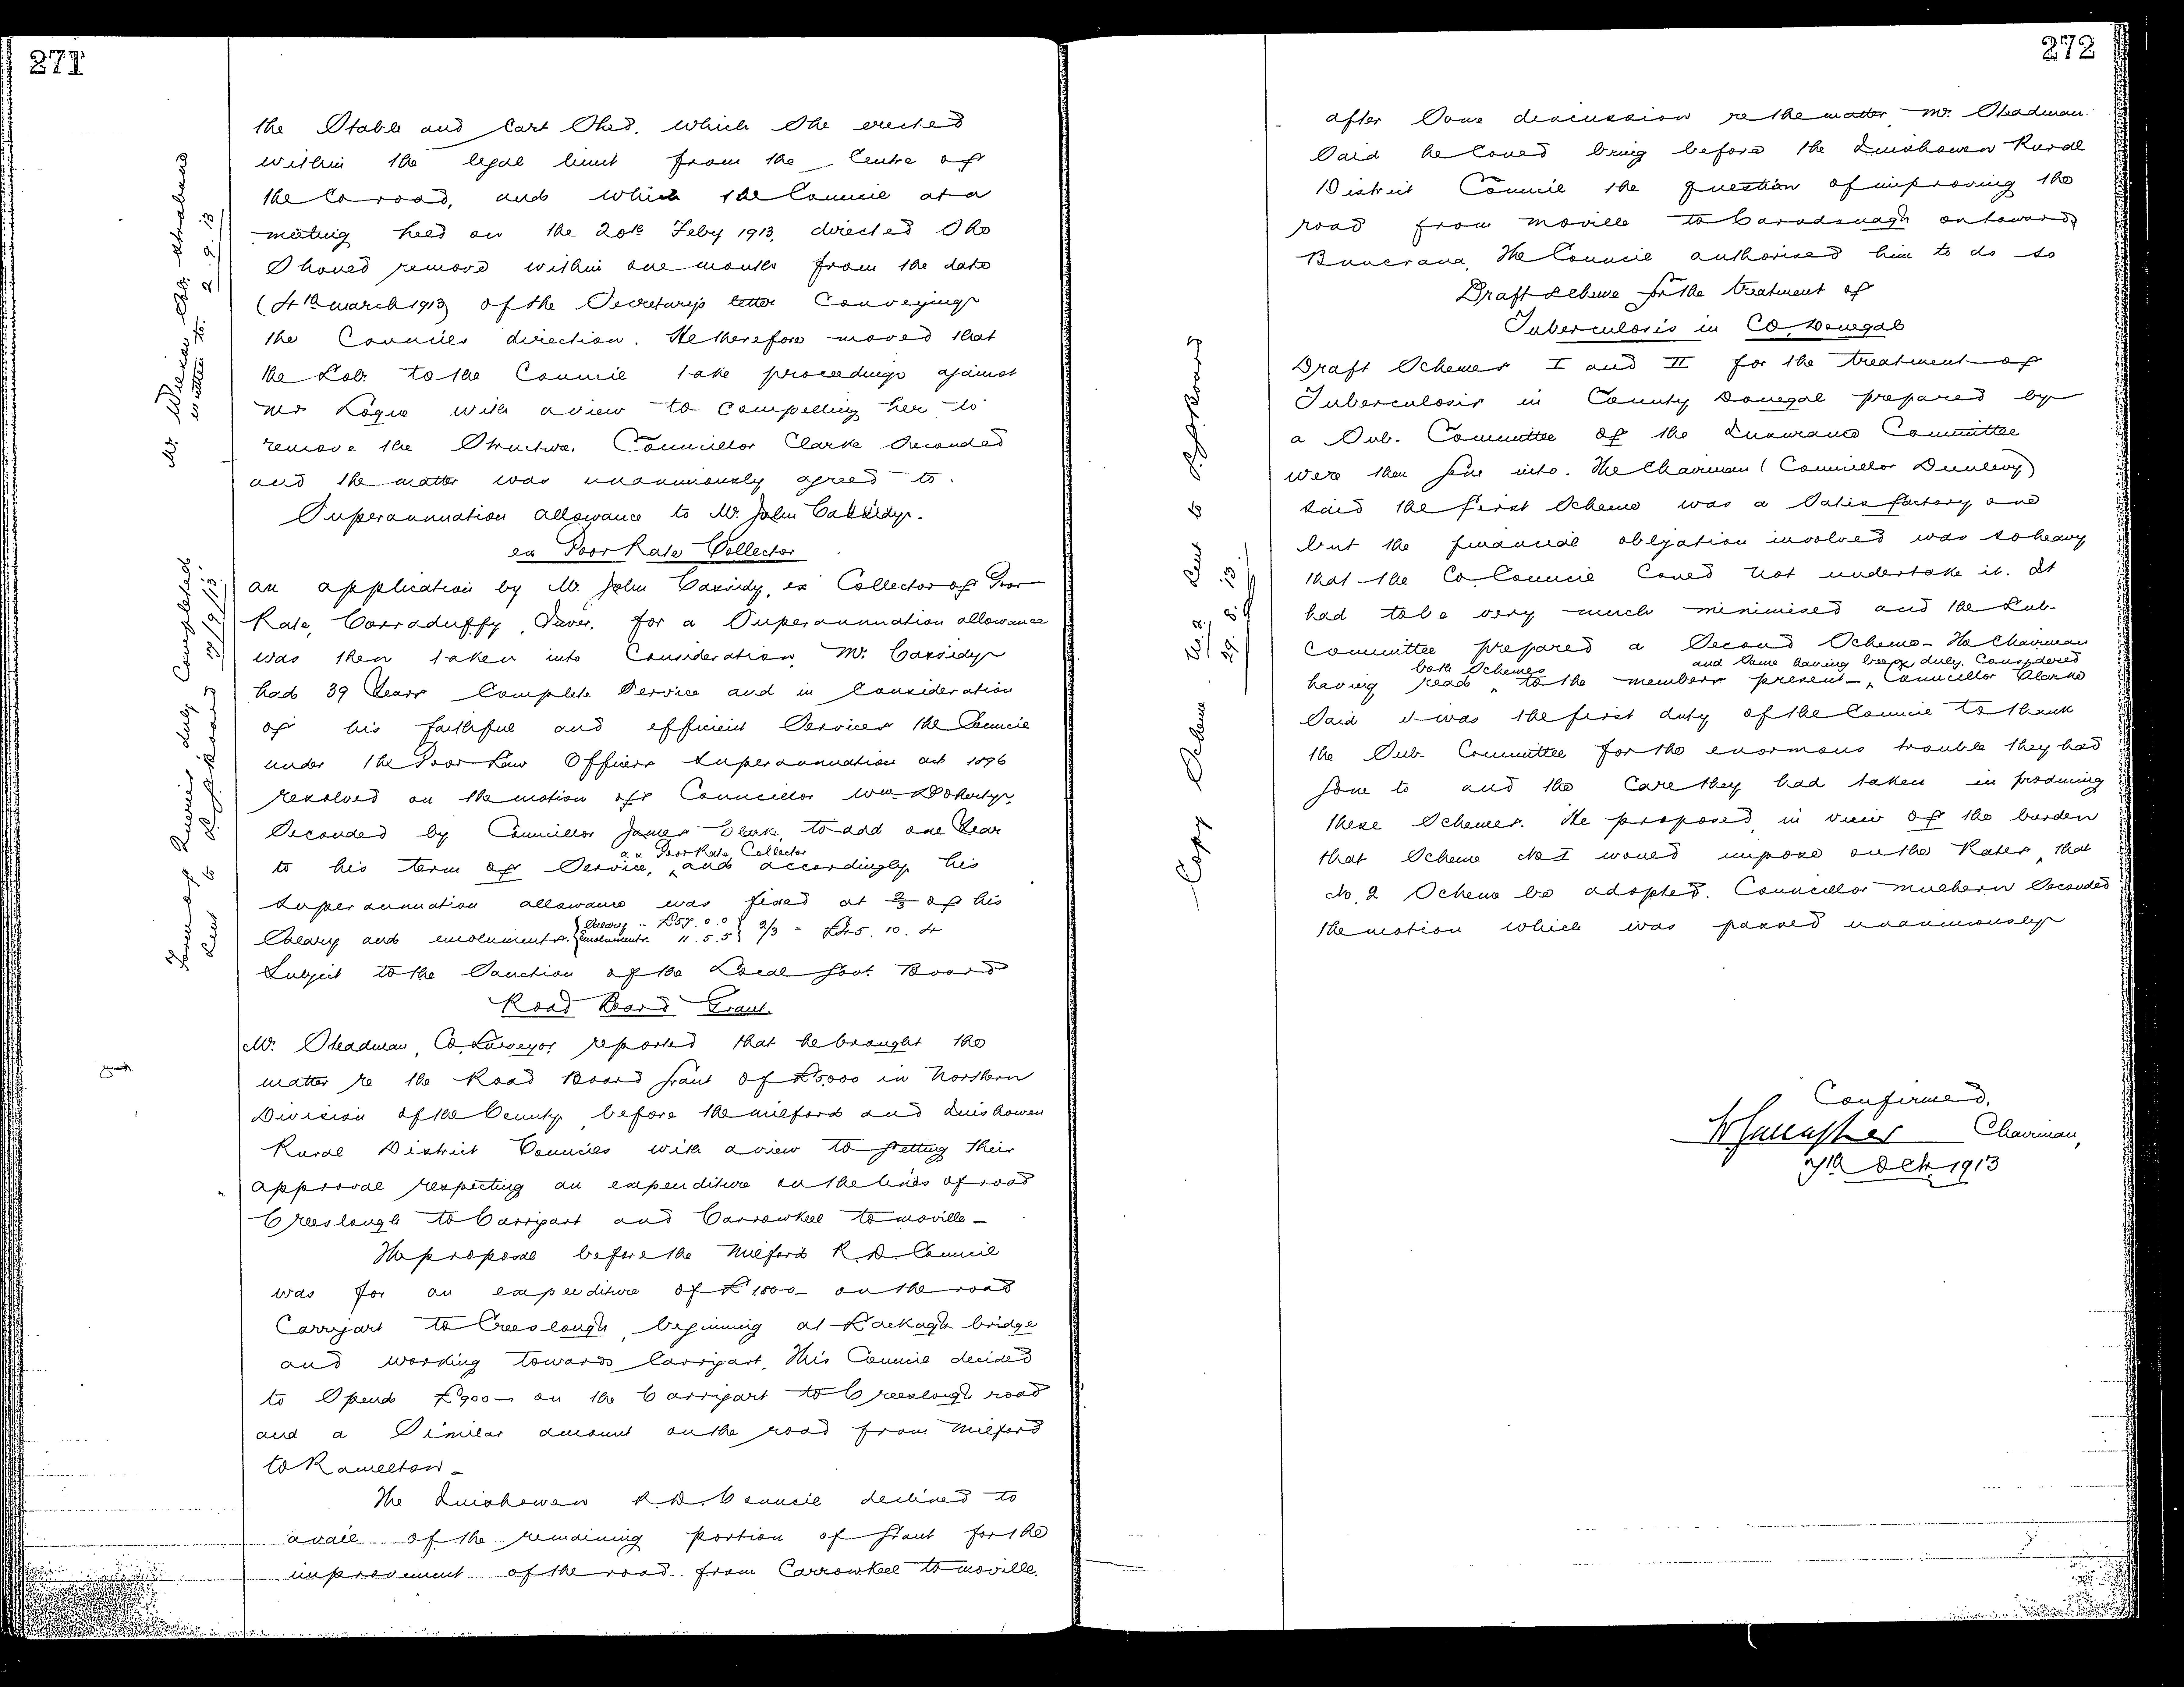 271
the Stable and Cart Shed, which She erected
within the legal limit from the Centre of
the Co road, and which the Council at a
meeting held on the 20th Feby 1913, directed She
Should remove within one month from the date
(4th March 1913) of the Secretary's letter Conveying
the Councils direction. He therefore moved that
the Sol: to the Council take proceedings against
Mrs Logue with a view to Compelling her to
remove the Structure. Councillor Clarke Seconded
and the matter was unanimously agreed to.
Mr. Wilson Sol: Strabane
written to. 2.9.13
Superannuation allowance to Mr. John Cassidy.
ex Poor Rate Collector
an application by Mr. John Cassidy, ex Collector of Poor
Rate, Corraduffy, Inver, for a Superannuation allowance
was then taken into Consideration, Mr. Cassidy
had 39 Years Complete Service and in Consideration
of his faithful and efficient Services the Council
under the Poor Law Officers Superannuation act 1896
resolved on the motion of Councillor Wm Doherty,
Seconded by Councillor James Clark, to add one Year
to his term of Service, as Poor Rate Collector and accordingly his
Superannuation allowance was fixed at 2/3 of his
Salary and emoluments. {Salary .. £57.0.0
Emoluments. 11.5.5} 2/3 = £45.10.4
Subject to the Sanction of the Local Govt. Board
Form of Queries duly Completed
Sent to L.G.Board 17/9/13.
Road Board Grant.
Mr. Steadman, Co. Surveyor, reported that he brought the
matter re the Road Board Grant of £5,000 in Northern
Division of the County before the Milford and Inishowen
Rural District Councils with a view to getting their
approval respecting an expenditure on the lines of road
Creeslough to Carrigart and Carrowkeel to Moville -
The proposal before the Milford R.D. Council
was for an expenditure of £1800 - on the road
Carrigart to Creeslough, beginning at Lackagh bridge
and working towards Carrigart. This Council decided
to Spend £900 - on the Carrigart to Creeslough road
and a Similar amount on the road from Milford
to Ramelton -
The Inishowen R.D. Council declined to
avail of the remaining portion of Grant for the
improvement of the road from Carrowkeel to Moville.
272
after Some discussion re the matter, Mr. Steadman
Said he Could bring before the Inishowen Rural
District Council the question of improving the
road from Moville to Carndonagh on towards
Buncrana, The Council authorised him to do so
Draft Scheme for the treatment of
Tuberculosis in Co. Donegal
Draft Schemes I and II for the treatment of
Tuberculosis in County Donegal prepared by
a Sub. Committee of the Insurance Committee
were then gone into. The Chairman (Councillor Dunlevy)
said the first Scheme was a Satisfactory one
but the financial obligation involved was so heavy
that the Co. Council Could not undertake it. It
had to be very much minimised and the Sub-
Committee prepared a Second Scheme - The Chairman
having read both Schemes to the members present - and Same having been duly Considered Councillor Clarke
Said it was the first duty of the Council to thank
the Sub. Committee for the enormous trouble they had
gone to and the Care they had taken in producing
these Schemes. He proposed, in view of the burden
that Scheme No I would impose on the Rates, that
No. 2 Scheme be adopted. Councillor Mulhern Seconded
the motion which was passed unanimously
Copy Scheme No. 2 Sent to L.G.Board
29.8.13.
Confirmed,
W Gallagher Chairman,
7th Oct. 1913